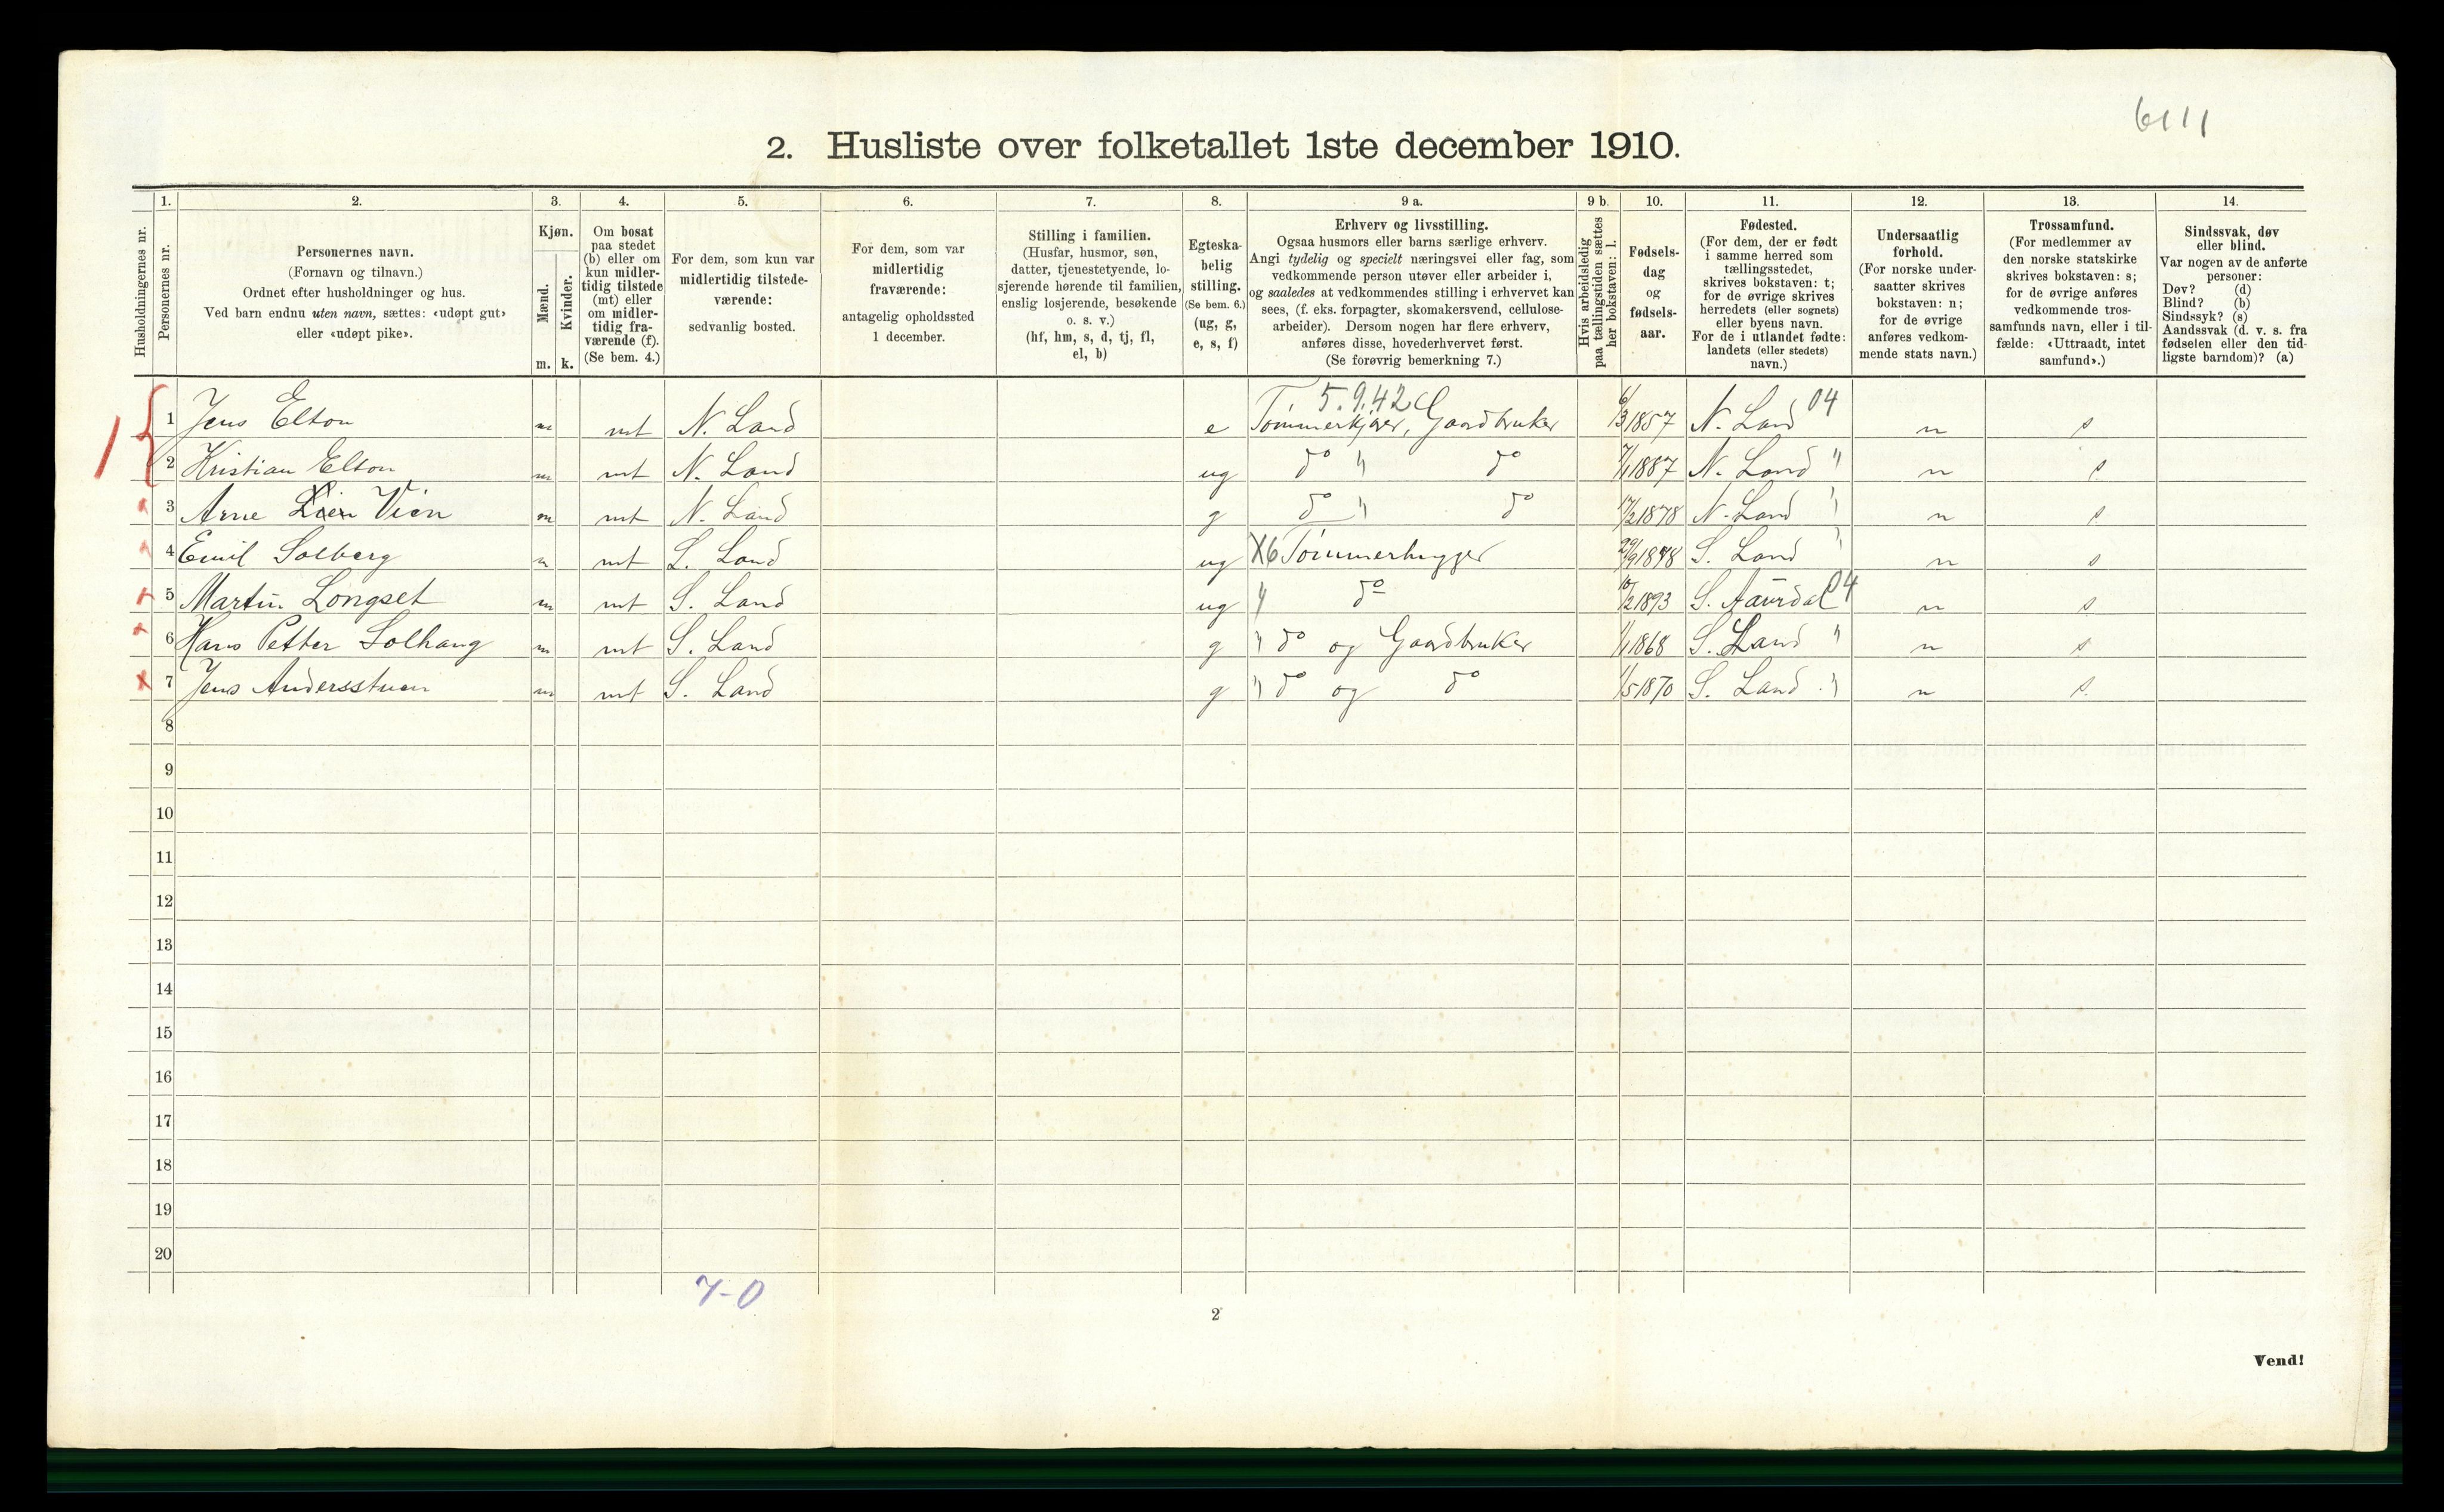 6111
2. Husliste over folketallet 1ste december 1910.
Husholdningernes nr.
1.
Personernes nr.
2.
Personernes navn.
(Fornavn og tilnavn.)
Ordnet efter husholdninger og hus.
Ved barn endnu uten navn, sættes: «udøpt gut»
eller «udøpt pike».
3.
Kjøn.
Mænd.
Kvinder.
m. k.
4.
Om bosat
paa stedet
(b) eller om
kun midler-
tidig tilstede
(mt) eller
om midler-
tidig fra-
værende (f).
(Se bem. 4.)
5.
For dem, som kun var
midlertidig tilstede-
værende:
sedvanlig bosted.
6.
For dem, som var
midlertidig
fraværende:
antagelig opholdssted
1 december.
7.
Stilling i familien.
(Husfar, husmor, søn,
datter, tjenestetyende, lo-
sjerende hørende til familien,
enslig losjerende, besøkende
o. s. v.)
(hf, hm, s, d, tj, fl,
el, b)
8.
Egteska-
belig
stilling.
(Se bem. 6.)
(ug, g,
e, s, f)
9 a.
Erhverv og livsstilling.
Ogsaa husmors eller barns særlige erhverv.
Angi tydelig og specielt næringsvei eller fag, som
vedkommende person utøver eller arbeider i,
og saaledes at vedkommendes stilling i erhvervet kan
sees, (f. eks. forpagter, skomakersvend, cellulose-
arbeider). Dersom nogen har flere erhverv,
anføres disse, hovederhvervet først.
(Se forøvrig bemerkning 7.)
9 b.
Hvis arbeidsledig
paa tællingstiden sættes
her bokstaven: l.
10.
Fødsels-
dag
og
fødsels-
aar.
11.
Fødested.
(For dem, der er født
i samme herred som
tællingsstedet,
skrives bokstaven: t;
for de øvrige skrives
herredets (eller sognets)
eller byens navn.
For de i utlandet fødte:
landets (eller stedets)
navn.)
12.
Undersaatlig
forhold.
(For norske under-
saatter skrives
bokstaven: n;
for de øvrige
anføres vedkom-
mende stats navn.)
13.
Trossamfund.
(For medlemmer av
den norske statskirke
skrives bokstaven: s;
for de øvrige anføres
vedkommende tros-
samfunds navn, eller i til-
fælde: «Uttraadt, intet
samfund».)
14.
Sindssvak, døv
eller blind.
Var nogen av de anførte
personer:
Døv? (d)
Blind? (b)
Sindssyk? (s)
Aandssvak (d. v. s. fra
fødselen eller den tid-
ligste barndom)? (a)
5.9.42
1 Jens Elton m mt N. Land e Tømmerkjører, Gaardbruker 6/3 1857 N. Land 04 n s
2 Kristian Elton m mt N. Land ug do " do 7/1 1887 N. Land " n s
3 Arne Lien Vien m mt N. Land g do " do 17/2 1878 N. Land " n s
4 Emil Solberg m mt S. Land ug X6 Tømmerhugger 29/9 S. Land " n s
5 Martin Longset m mt S. Land ug " do 10/2 1893 S. Aurdal 04 n s
6 Hans Petter Solhaug m mt S. Land g " do og Gaardbruker 1/1 1868 S. Land " n s
7 Jens Andersstuen m mt S. Land g " do og do 1/5 1870 S. Land " n s.
8
9
10
11
12
13
14
15
16
17
18
19
20
7-0
2
Vend!